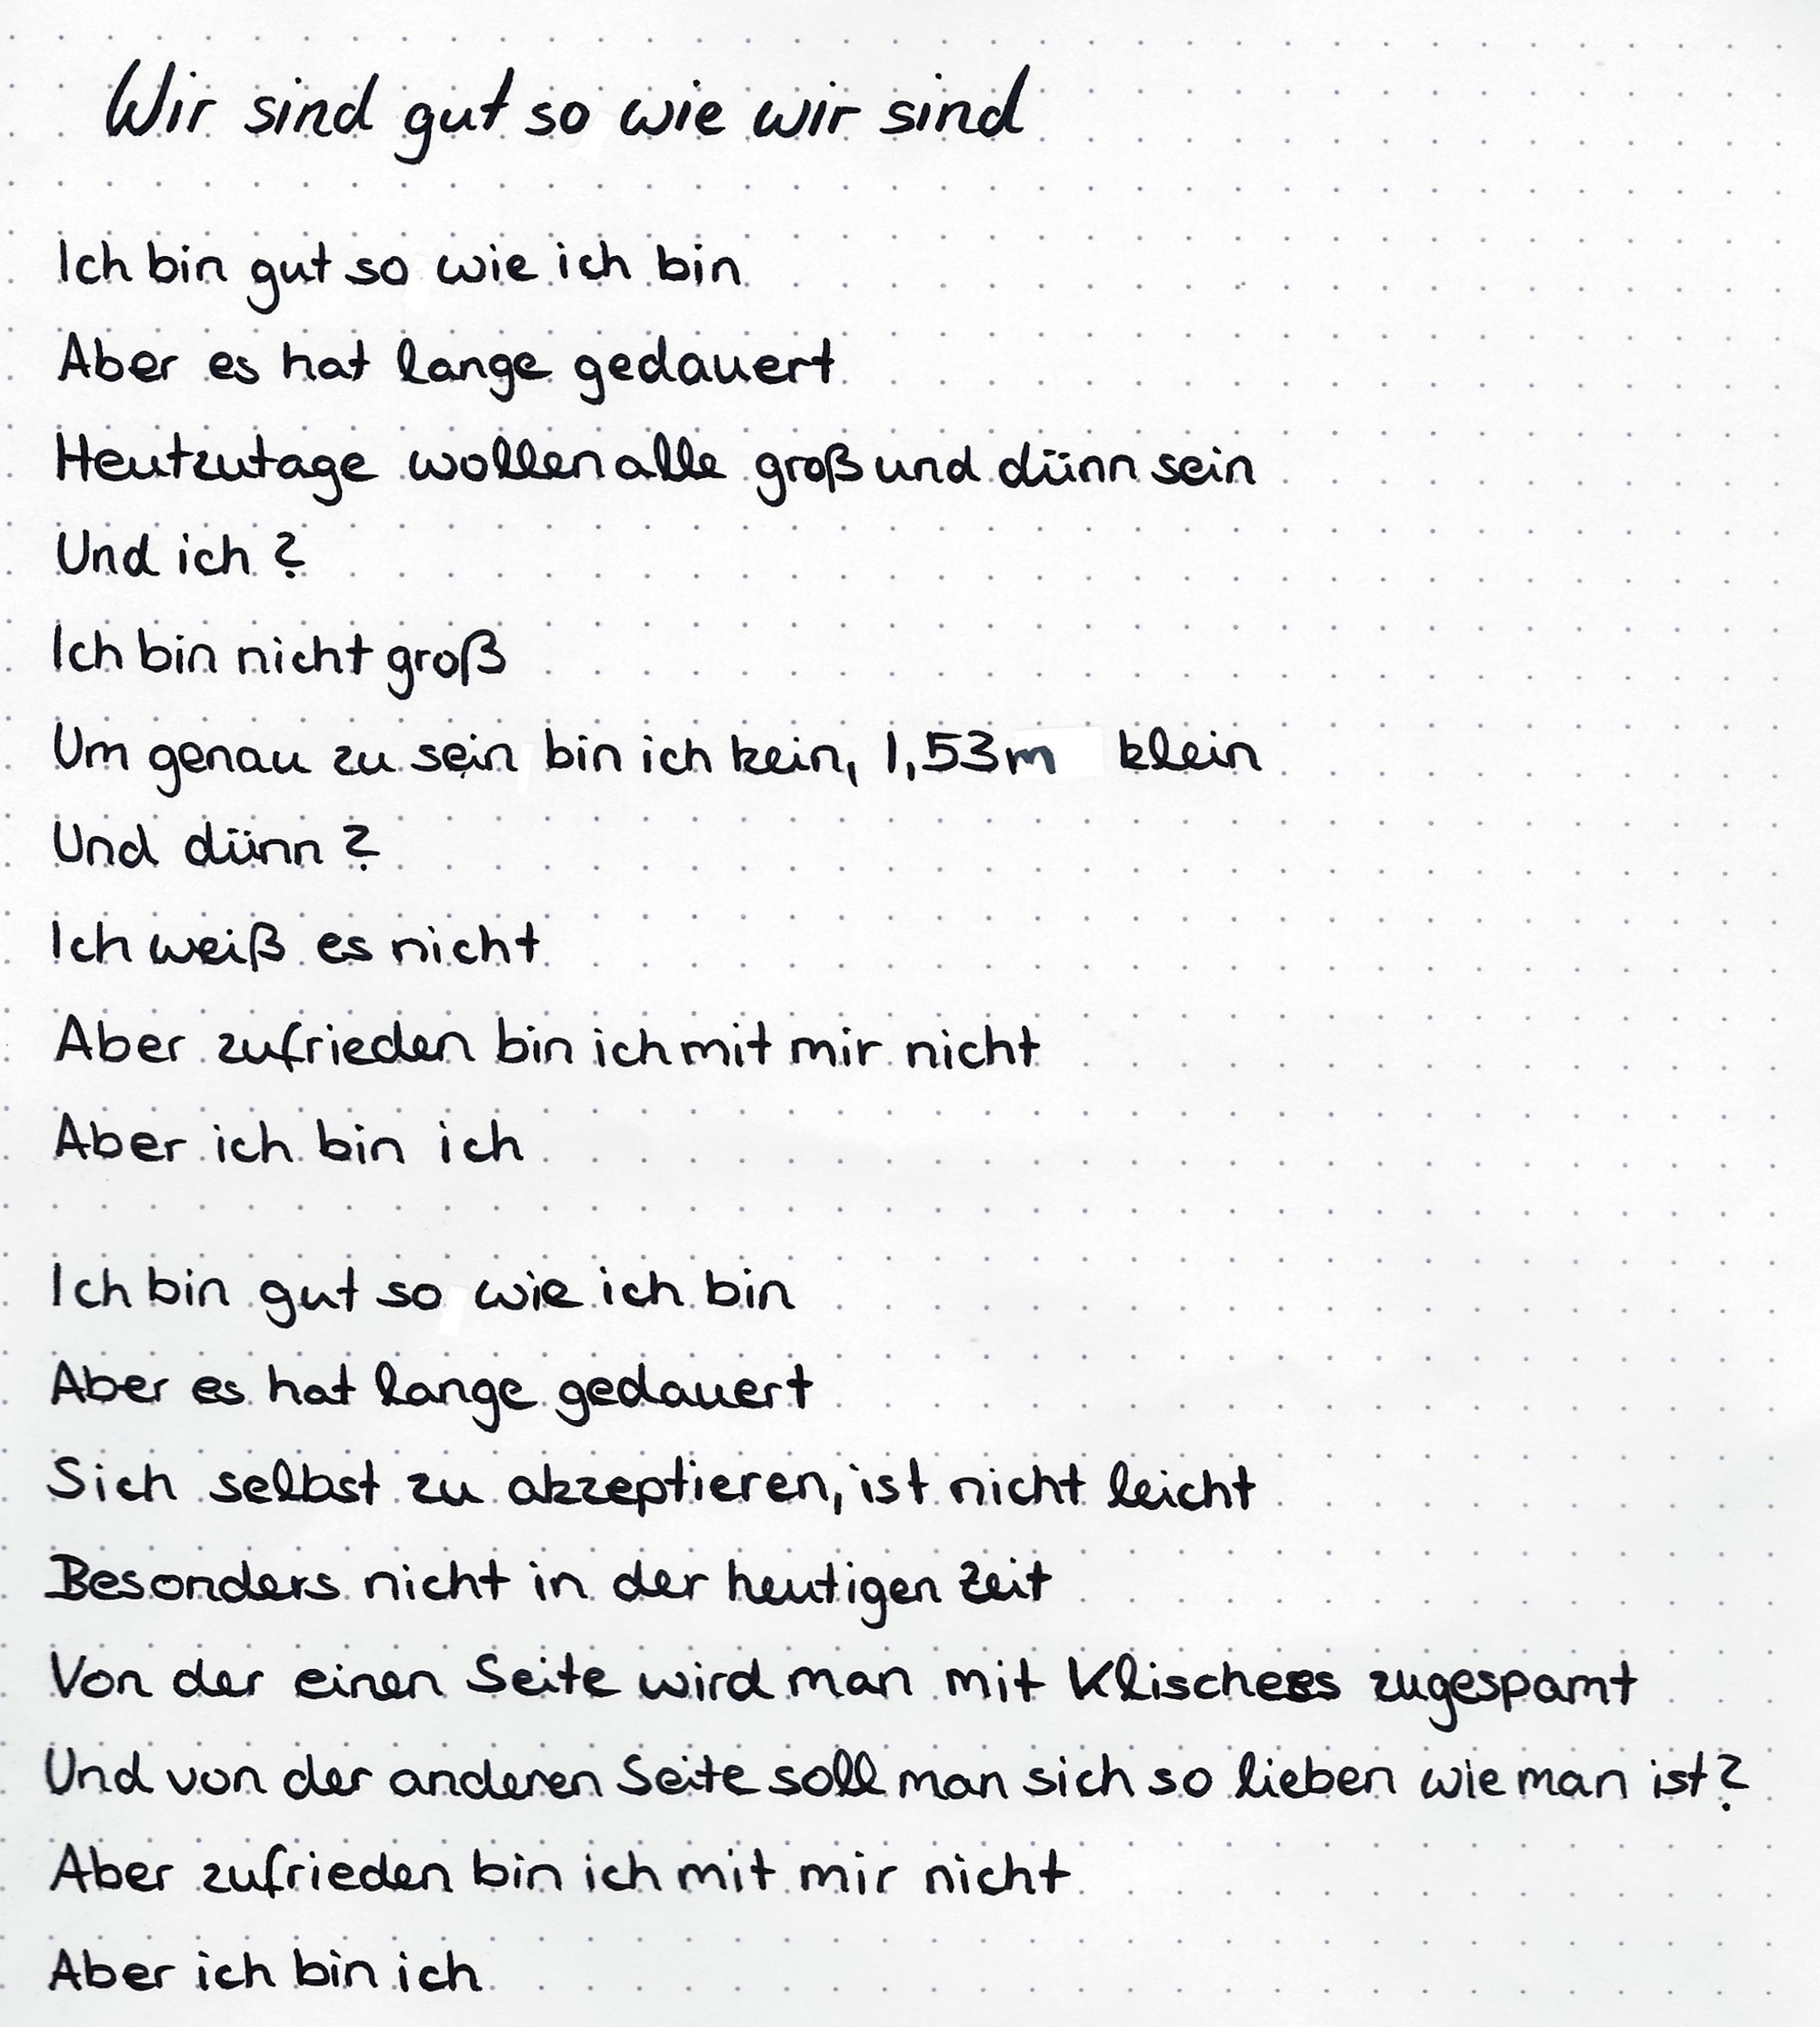 Wir sind gut so wie wir sind
Ich bin gut so wie ich bin
Aber es hat lange gedauert
Heutzutage wollen alle groß und dünn sein
Und ich?
Ich bin nicht groß
Um genau zu sein bin ich kein, 1,53m klein
Und dünn?
Ich weiß es nicht
Aber zufrieden bin ich mit mir nicht
Aber ich bin ich
Ich bin gut so wie ich bin
Aber es hat lange gedauert
Sich selbst zu akzeptieren, ist nicht leicht
Besonders nicht in der heutigen Zeit
Von der einen Seite wird man mit Klischees zugespamt
Und von der anderen Seite soll man sich so lieben wie man ist?
Aber zufrieden bin ich mit mir nicht
Aber ich bin ich